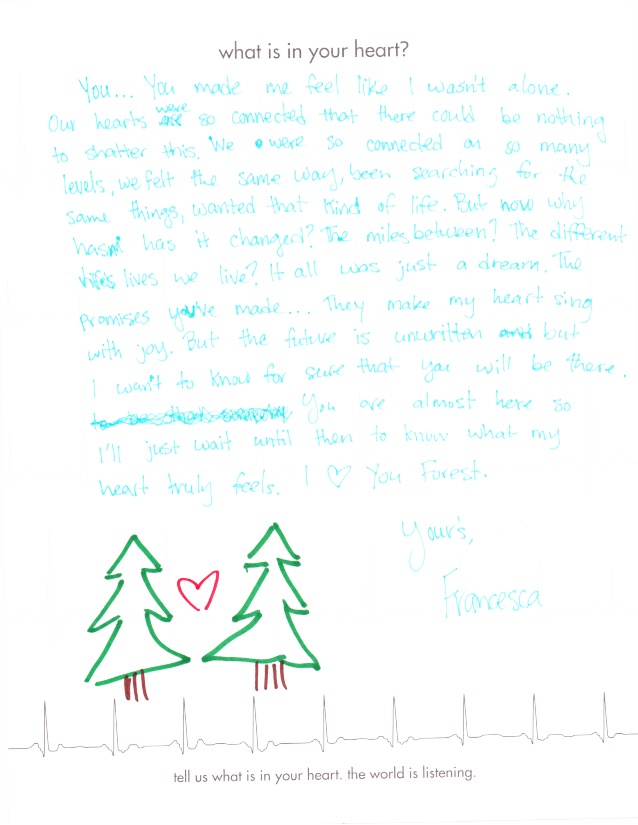 what is in your heart?
You... You made me feel like I wasn't alone.
Our hearts were so connected that there could be nothing
to shatter this. We were so connected on so many
levels, we felt the same way, been searching for the
same things, wanted that kind of life. But now why
hasn't has it changed? The miles between? The different
lives we live? It all was just a dream. The
promises you've made... They make my heart sing
with joy. But the future is unwritten and but
I want to know for sure that you will be there.
You are almost here so
I'll just wait until then to know what my
heart truly feels. I ♡ You Forest.
Your's,
Francesca
tell us what is in your heart. the world is listening.